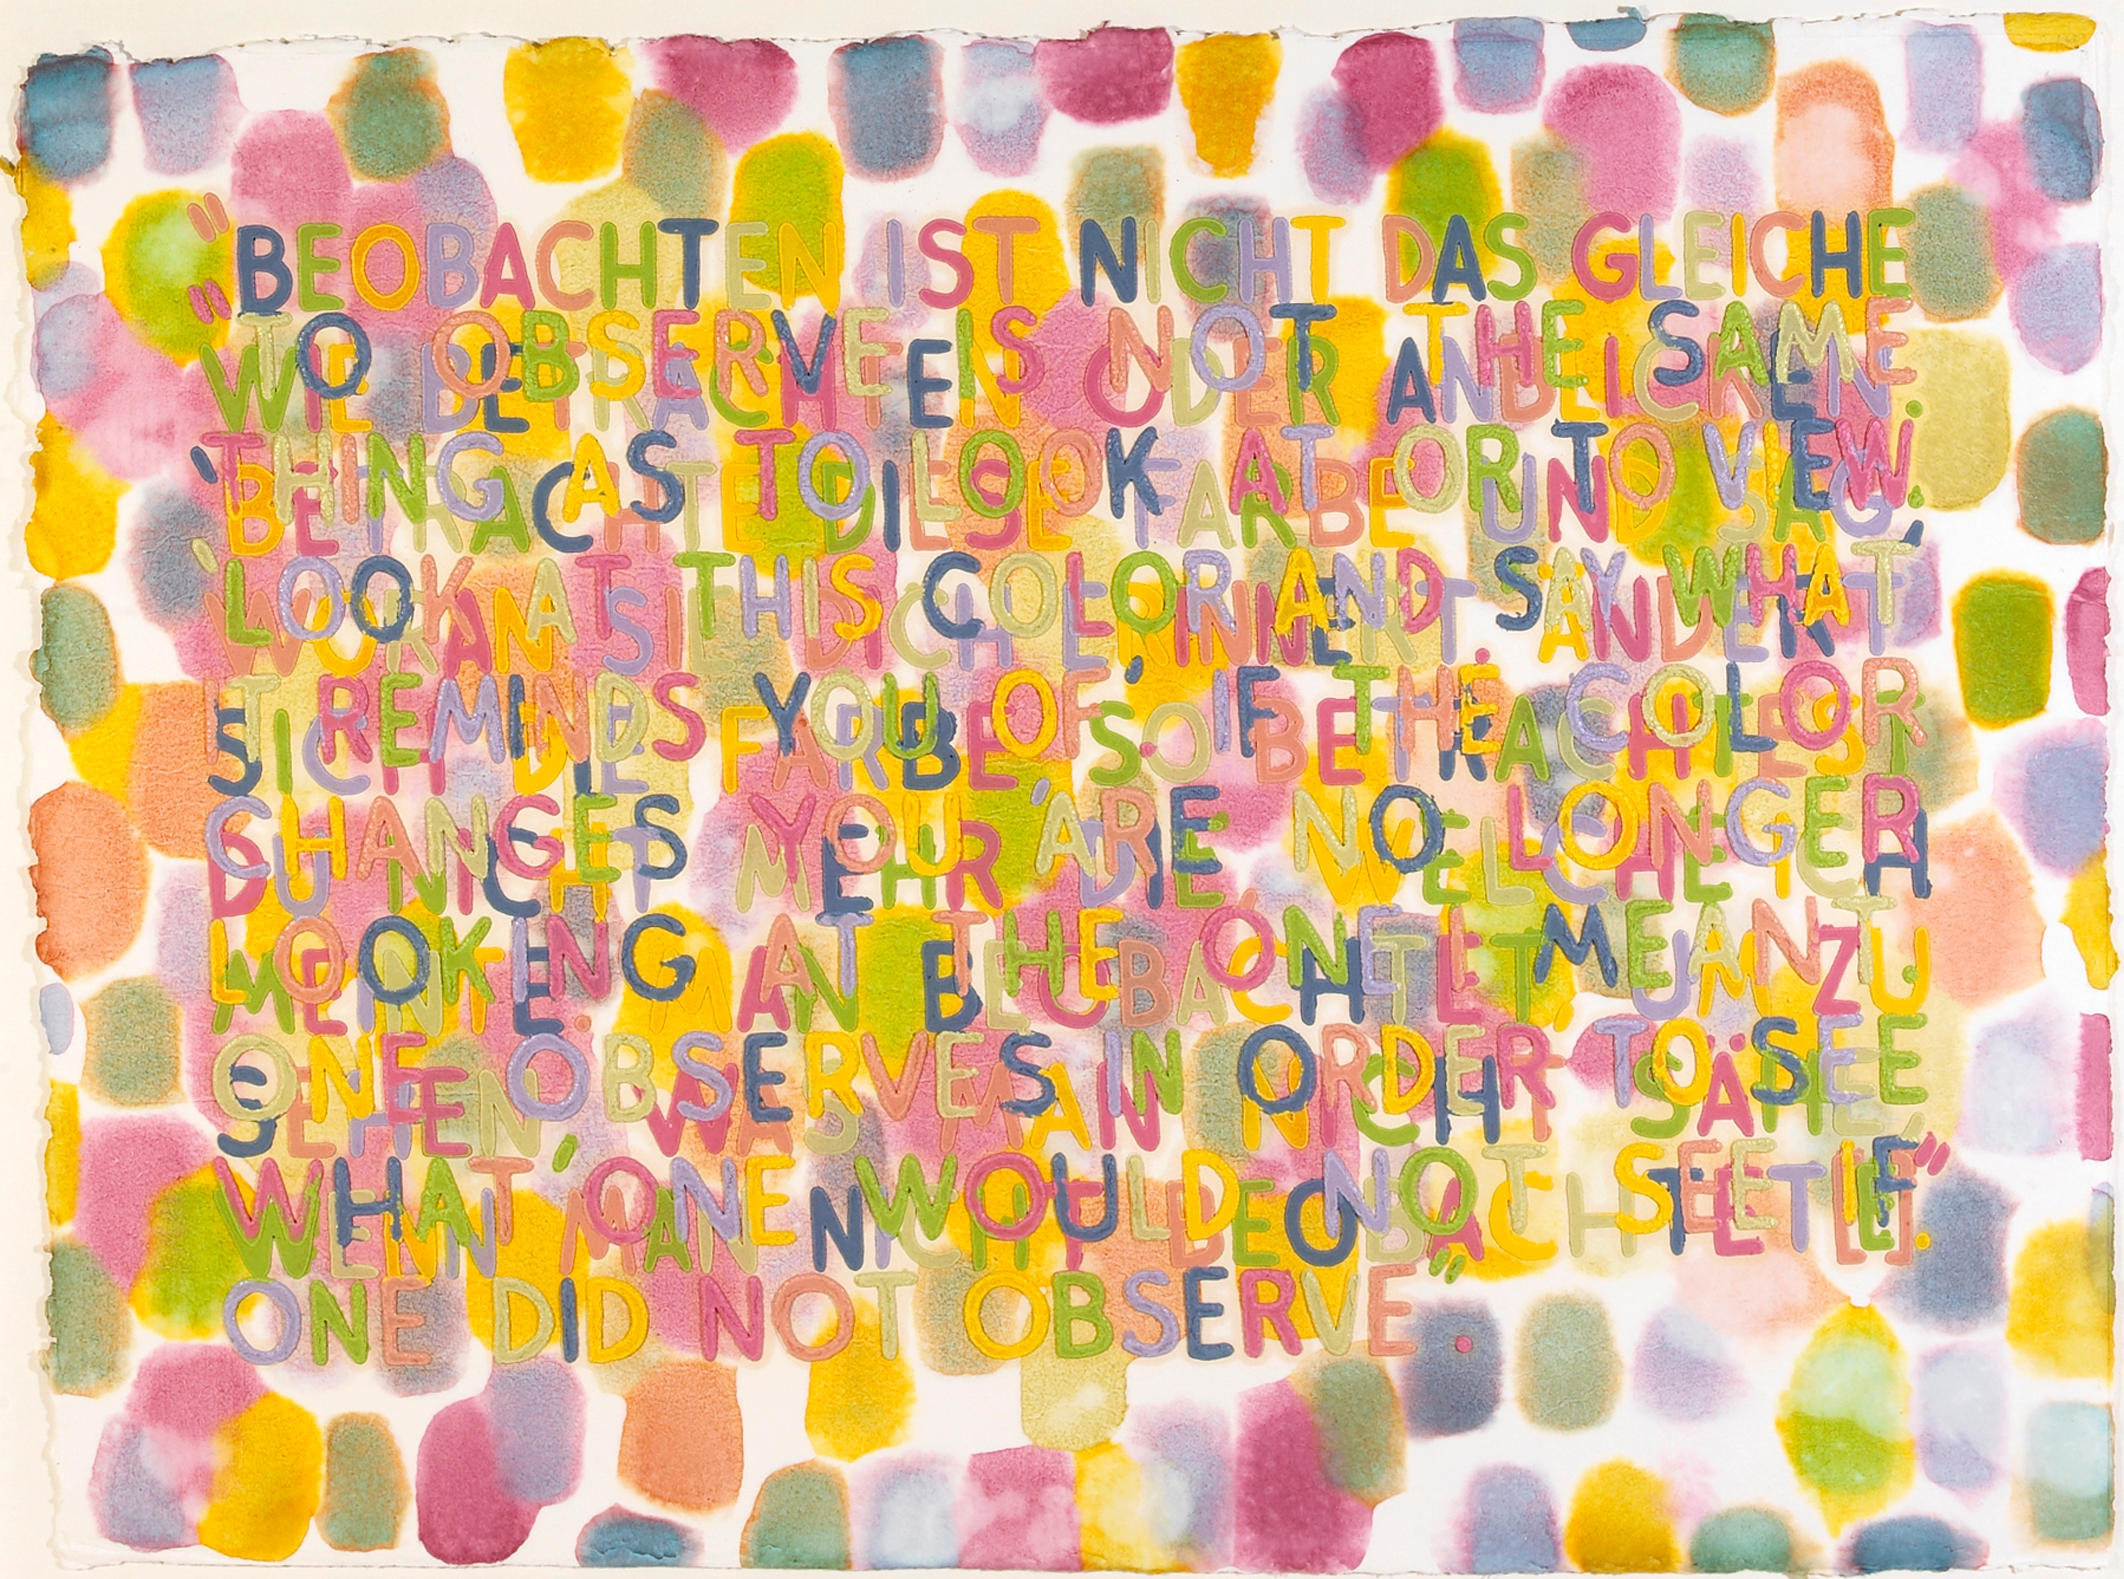 "BEOBACHTEN IST NICHT DAS GLEICHE
"TO OBSERVE IS NOT THE SAME
WIE BETRACHTEN ODER ANBLICKEN.
THING AS TO LOOK AT OR TO VIEW.
'BETRACHTE DIESE FARBE UND SAG,
'LOOK AT THIS COLOR AND SAY WHAT
WORAN SIE DICH ERINNERT.' ÄNDERT
IT REMINDS YOU OF.' IF THE COLOR
SICH DIE FARBE, SO BETRACHTEST
CHANGES YOU ARE NO LONGER
DU NICHT MEHR DIE, WELCHE ICH
LOOKING AT THE ONE I MEANT.
MEINE. MAN BEOBACHTET, UM ZU
ONE OBSERVES IN ORDER TO SEE
SEHEN, WAS MAN NICHT SÄHE,
WHAT ONE WOULD NOT SEE IF
WENN MAN NICHT BEOBACHTET[E]."
ONE DID NOT OBSERVE."